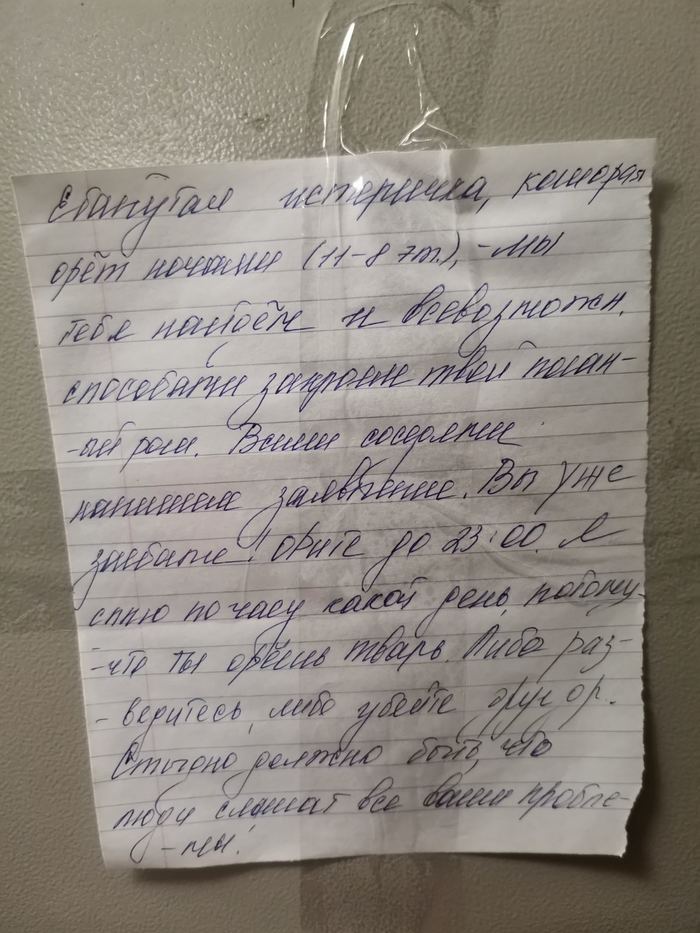 Ебанутая истеричка, которая
орёт ночами (11-8 эт.), - мы
тебя найдём и всевозможн.
способами закроем твой поган-
-ый рот. Всеми соседями
напишем заявление. Вы уже
заебали! Орите до 23:00. Я
сплю по часу какой день, потому-
-что ты орёшь тварь. Либо раз-
- ведитесь, либо убейте друг др.
Стыдно должно быть, что
люди слышат все ваши пробле-
- мы!